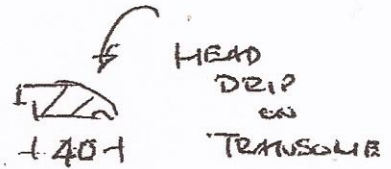 HEAD
DRIP
ON
TRANSOME
40